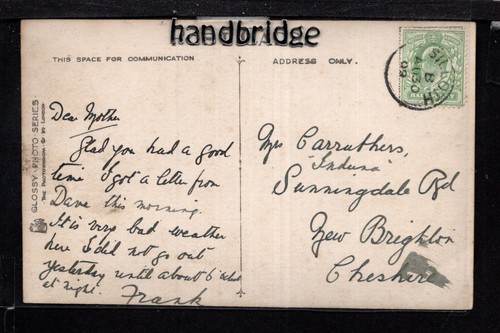 handbridge
THIS SPACE FOR COMMUNICATION
ADDRESS ONLY.
SILLOTH
B
AU 30
09
GLOSSY PHOTO SERIES.
Dear Mother
Glad you had a good
time I got a letter from
Dave this morning.
It is very bad weather
here I did not go out
yesterday until about 6
at night. Frank
Mrs Carruthers,
Sunningdale Rd
New Brighton
Cheshire